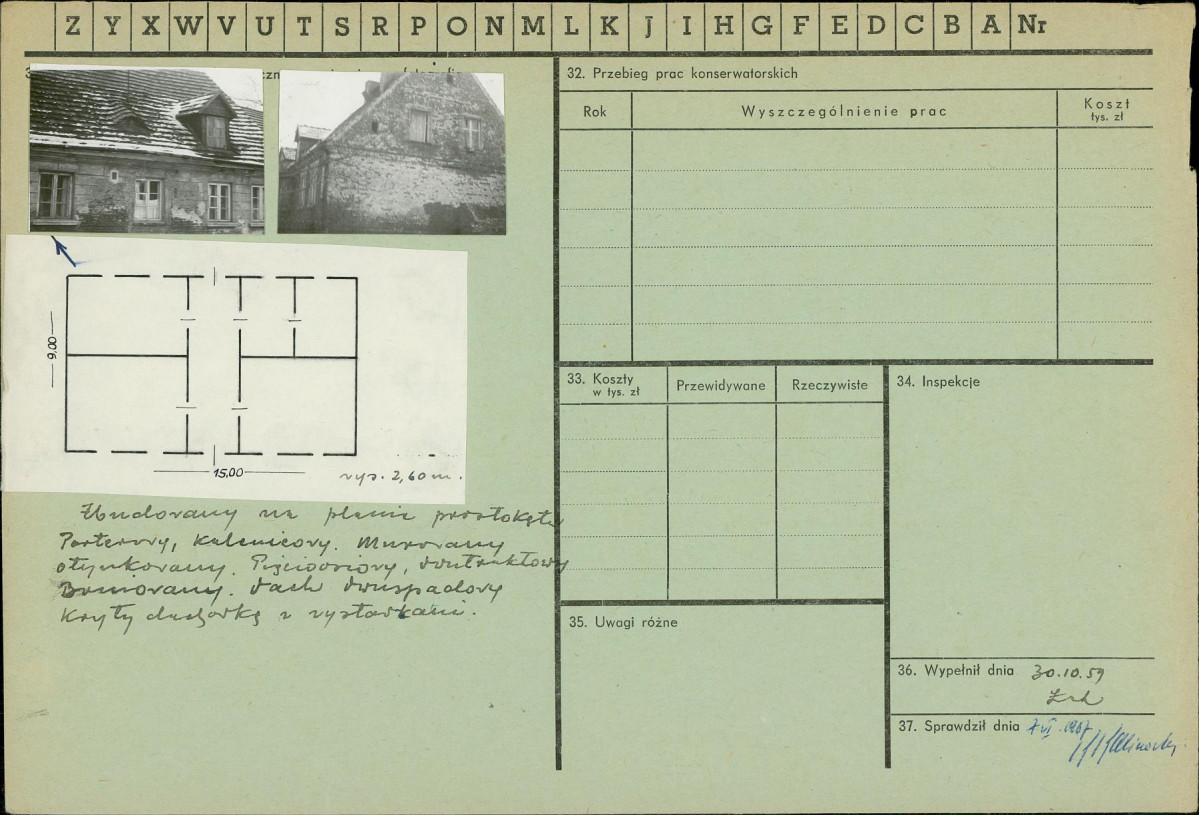 Z Y X W V U T S R P O N M L K J I H G F E D C B A Nr
9,00
15,00
wys. 2,60 m.
Zbudowany na planie prostokąta
Parterowy, kalenicowy. Murowany
otynkowany. Pięcioosiowy, dwutraktowy
Boniowany. Dach dwuspadowy
Kryty dachówką z wystawkami.
32. Przebieg prac konserwatorskich
Rok Wyszczególnienie prac Koszt
tys. zł
33. Koszty Przewidywane Rzeczywiste
w tys. zł
34. Inspekcje
35. Uwagi różne
36. Wypełnił dnia 30.10.59
37. Sprawdził dnia